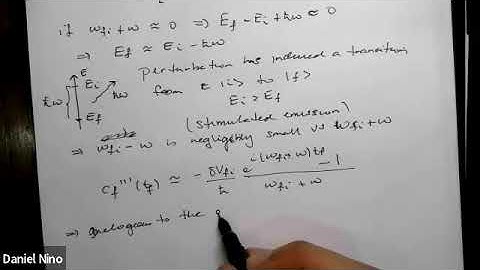 if ω_fi + ω ≈ 0 ⇒ E_f - E_i + ħω ≈ 0
⇒ E_f ≈ E_i - ħω
E
E_i
ħω
E_f
ħω
perturbation has induced a transition
from |i> to |f>
E_i > E_f
(stimulated emission)
⇒ ω_fi - ω is negligibly small vs ω_fi + ω
c_f^(1)(t_f) ≈ - δV_fi / ħ (e^{i(ω_fi+ω)t_f} - 1) / (ω_fi + ω)
⇒ analogous to the
Daniel Nino